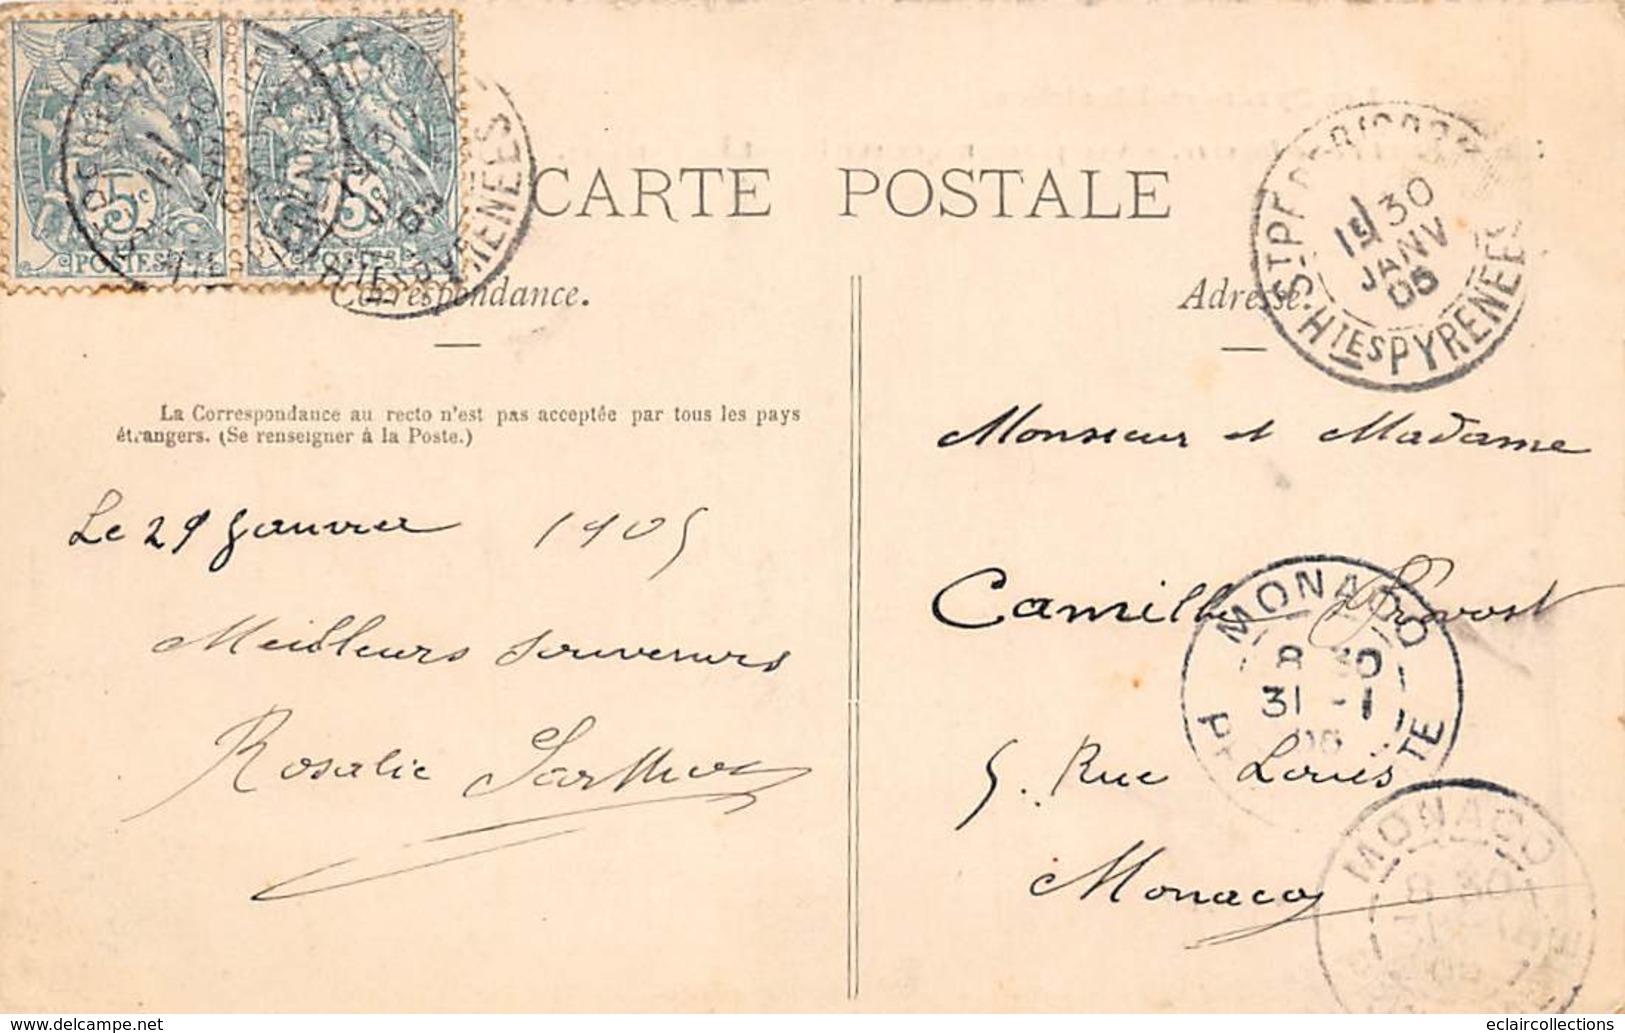 5c
5c
POSTES
POSTES
CARTE POSTALE
Correspondance.
Adresse.
ST PÉ DE BIGORRE
15 30
JANV
05
HTES PYRENEES
La Correspondance au recto n'est pas acceptée par tous les pays
étrangers. (Se renseigner à la Poste.)
Le 29 Janvier 1905
Meilleurs souvenirs
Rosalie
Monsieur et Madame
Camille Prévost
5. Rue Louis
Monaco
MONACO
8 30
31 -1
05
PTE
MONACO
8 30
www.delcampe.net
eclaircollections